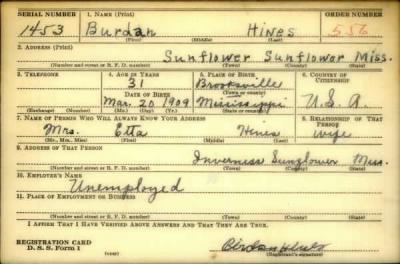 SERIAL NUMBER 1. NAME (Print) ORDER NUMBER
1453 Burdah Hines 556
(First) (Middle) (Last)
2. ADDRESS (Print)
Sunflower Sunflower Miss.
(Number and street or R. F. D. number) (Town) (County) (State)
3. TELEPHONE 4. AGE IN YEARS 5. PLACE OF BIRTH 6. COUNTRY OF CITIZENSHIP
31 Brooksville
DATE OF BIRTH (Town or county)
Mar. 20 1909 Mississippi U.S.A.
(Exchange) (Number) (Mo.) (Day) (Yr.) (State or country)
7. NAME OF PERSON WHO WILL ALWAYS KNOW YOUR ADDRESS 8. RELATIONSHIP OF THAT PERSON
Mrs. Etta Hines wife
(Mr., Mrs., Miss) (First) (Middle) (Last)
9. ADDRESS OF THAT PERSON
Inverness Sunflower Miss.
(Number and street or R. F. D. number) (Town) (County) (State)
10. EMPLOYER'S NAME
Unemployed
11. PLACE OF EMPLOYMENT OR BUSINESS
(Number and street or R. F. D. number) (Town) (County) (State)
I AFFIRM THAT I HAVE VERIFIED ABOVE ANSWERS AND THAT THEY ARE TRUE.
REGISTRATION CARD
D. S. S. Form 1 (over) (Registrant's signature)